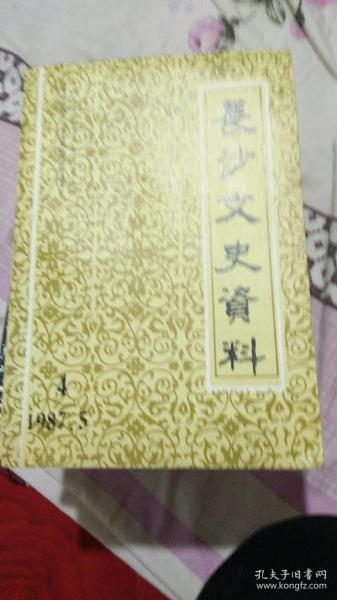 長沙文史資料
4
1987.5
孔夫子旧书网
www.kongfz.com